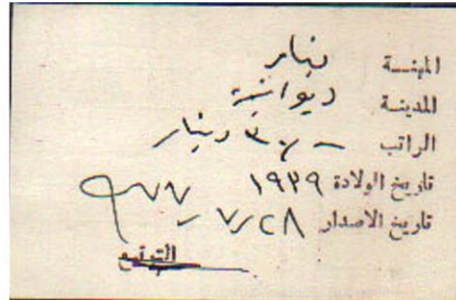 المهنة نجار
المدينة ديوانية
الراتب ٣٠٠ دينار
تاريخ الولادة ١٩٣٩
تاريخ الاصدار ٢٨/٧/٩٧٧
التوقيع